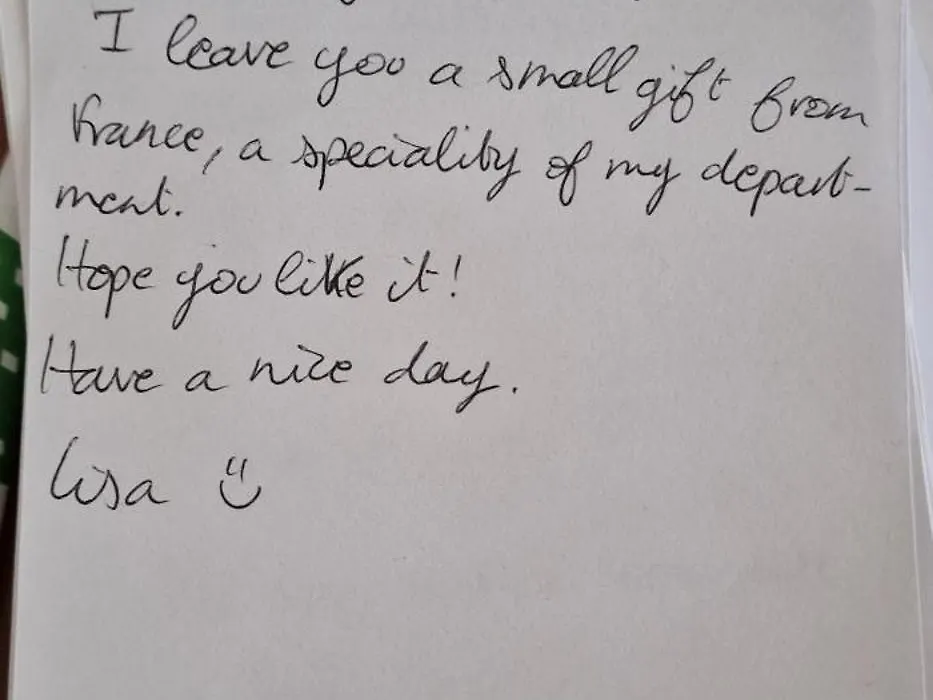 I leave you a small gift from
France, a speciality of my depart-
ment.
Hope you like it!
Have a nice day.
Lisa